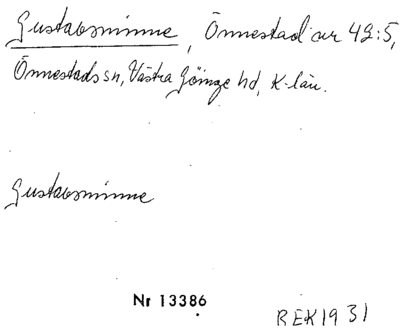 Gustavsminne, Önnestad av 42:5,
Önnestads sn, Västra Göinge hd, K-län.
Gustavsminne
Nr 13386
REK 1931